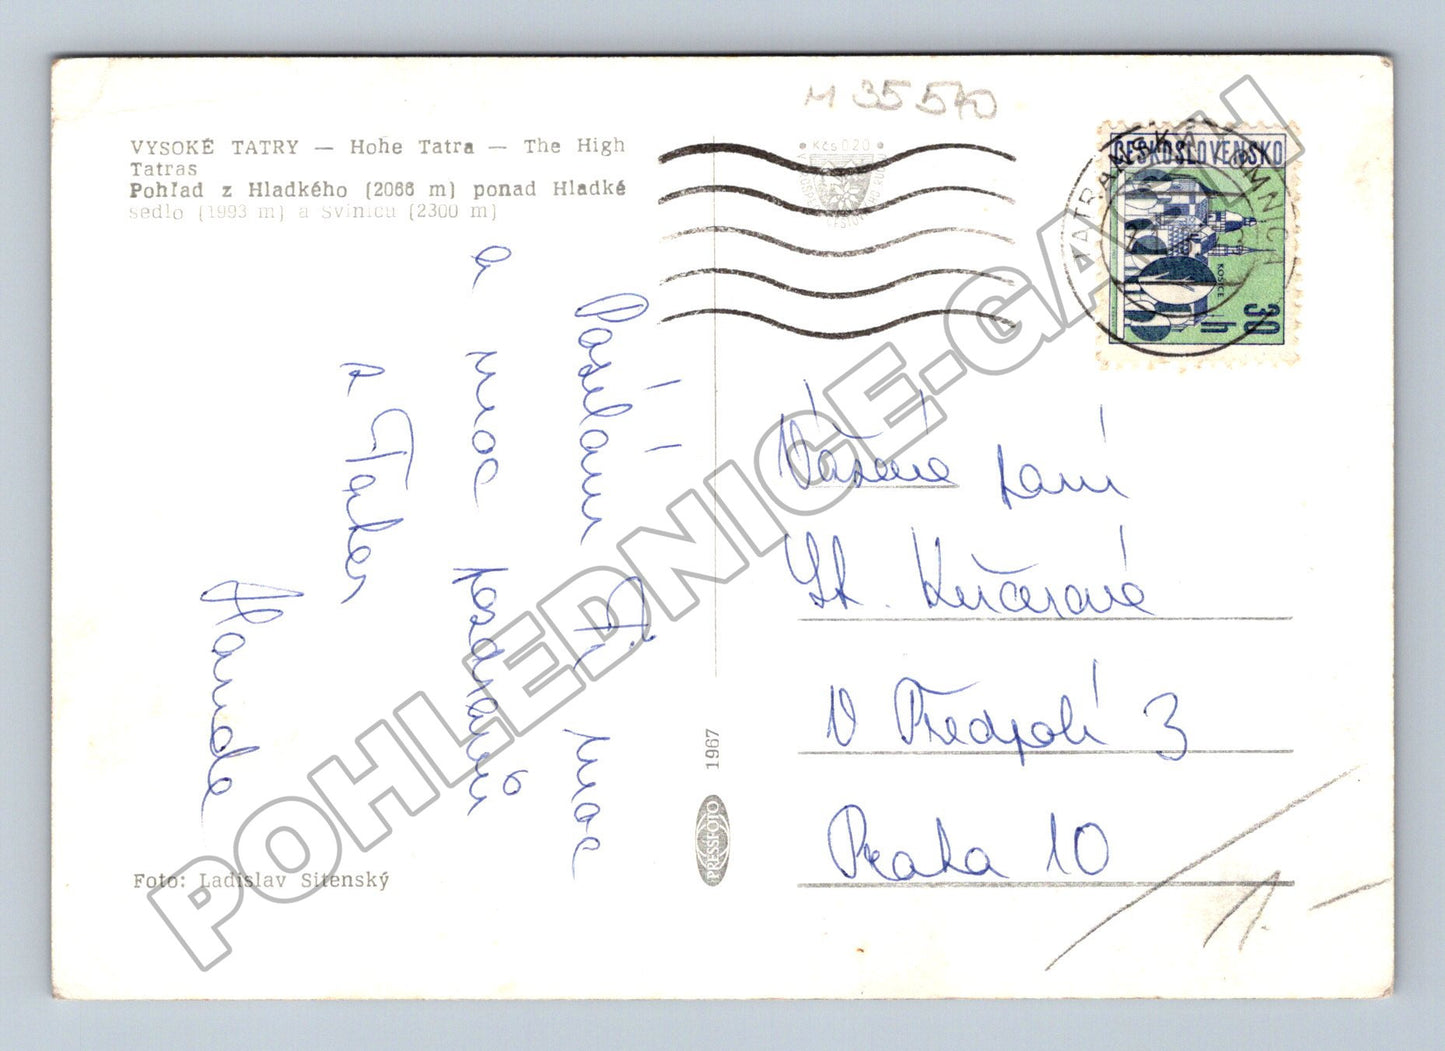 M 35 570
VYSOKÉ TATRY — Hohe Tatra — The High
Tatras
Pohľad z Hladkého (2066 m) ponad Hladké
sedlo (1993 m) a Svinicu (2300 m)
Kčs 0,20
ČESKOSLOVENSKO
KOŠICE
30 h
TATRANSKÁ LOMNICA
Posílám Ti moc
a moc pozdravů
z Tater
Handa
Vážená paní
Kučerová
V Předpolí 3
Praha 10
1967
PRESSFOTO
Foto: Ladislav Sitenský
1.-
POHLEDNICE-GACH